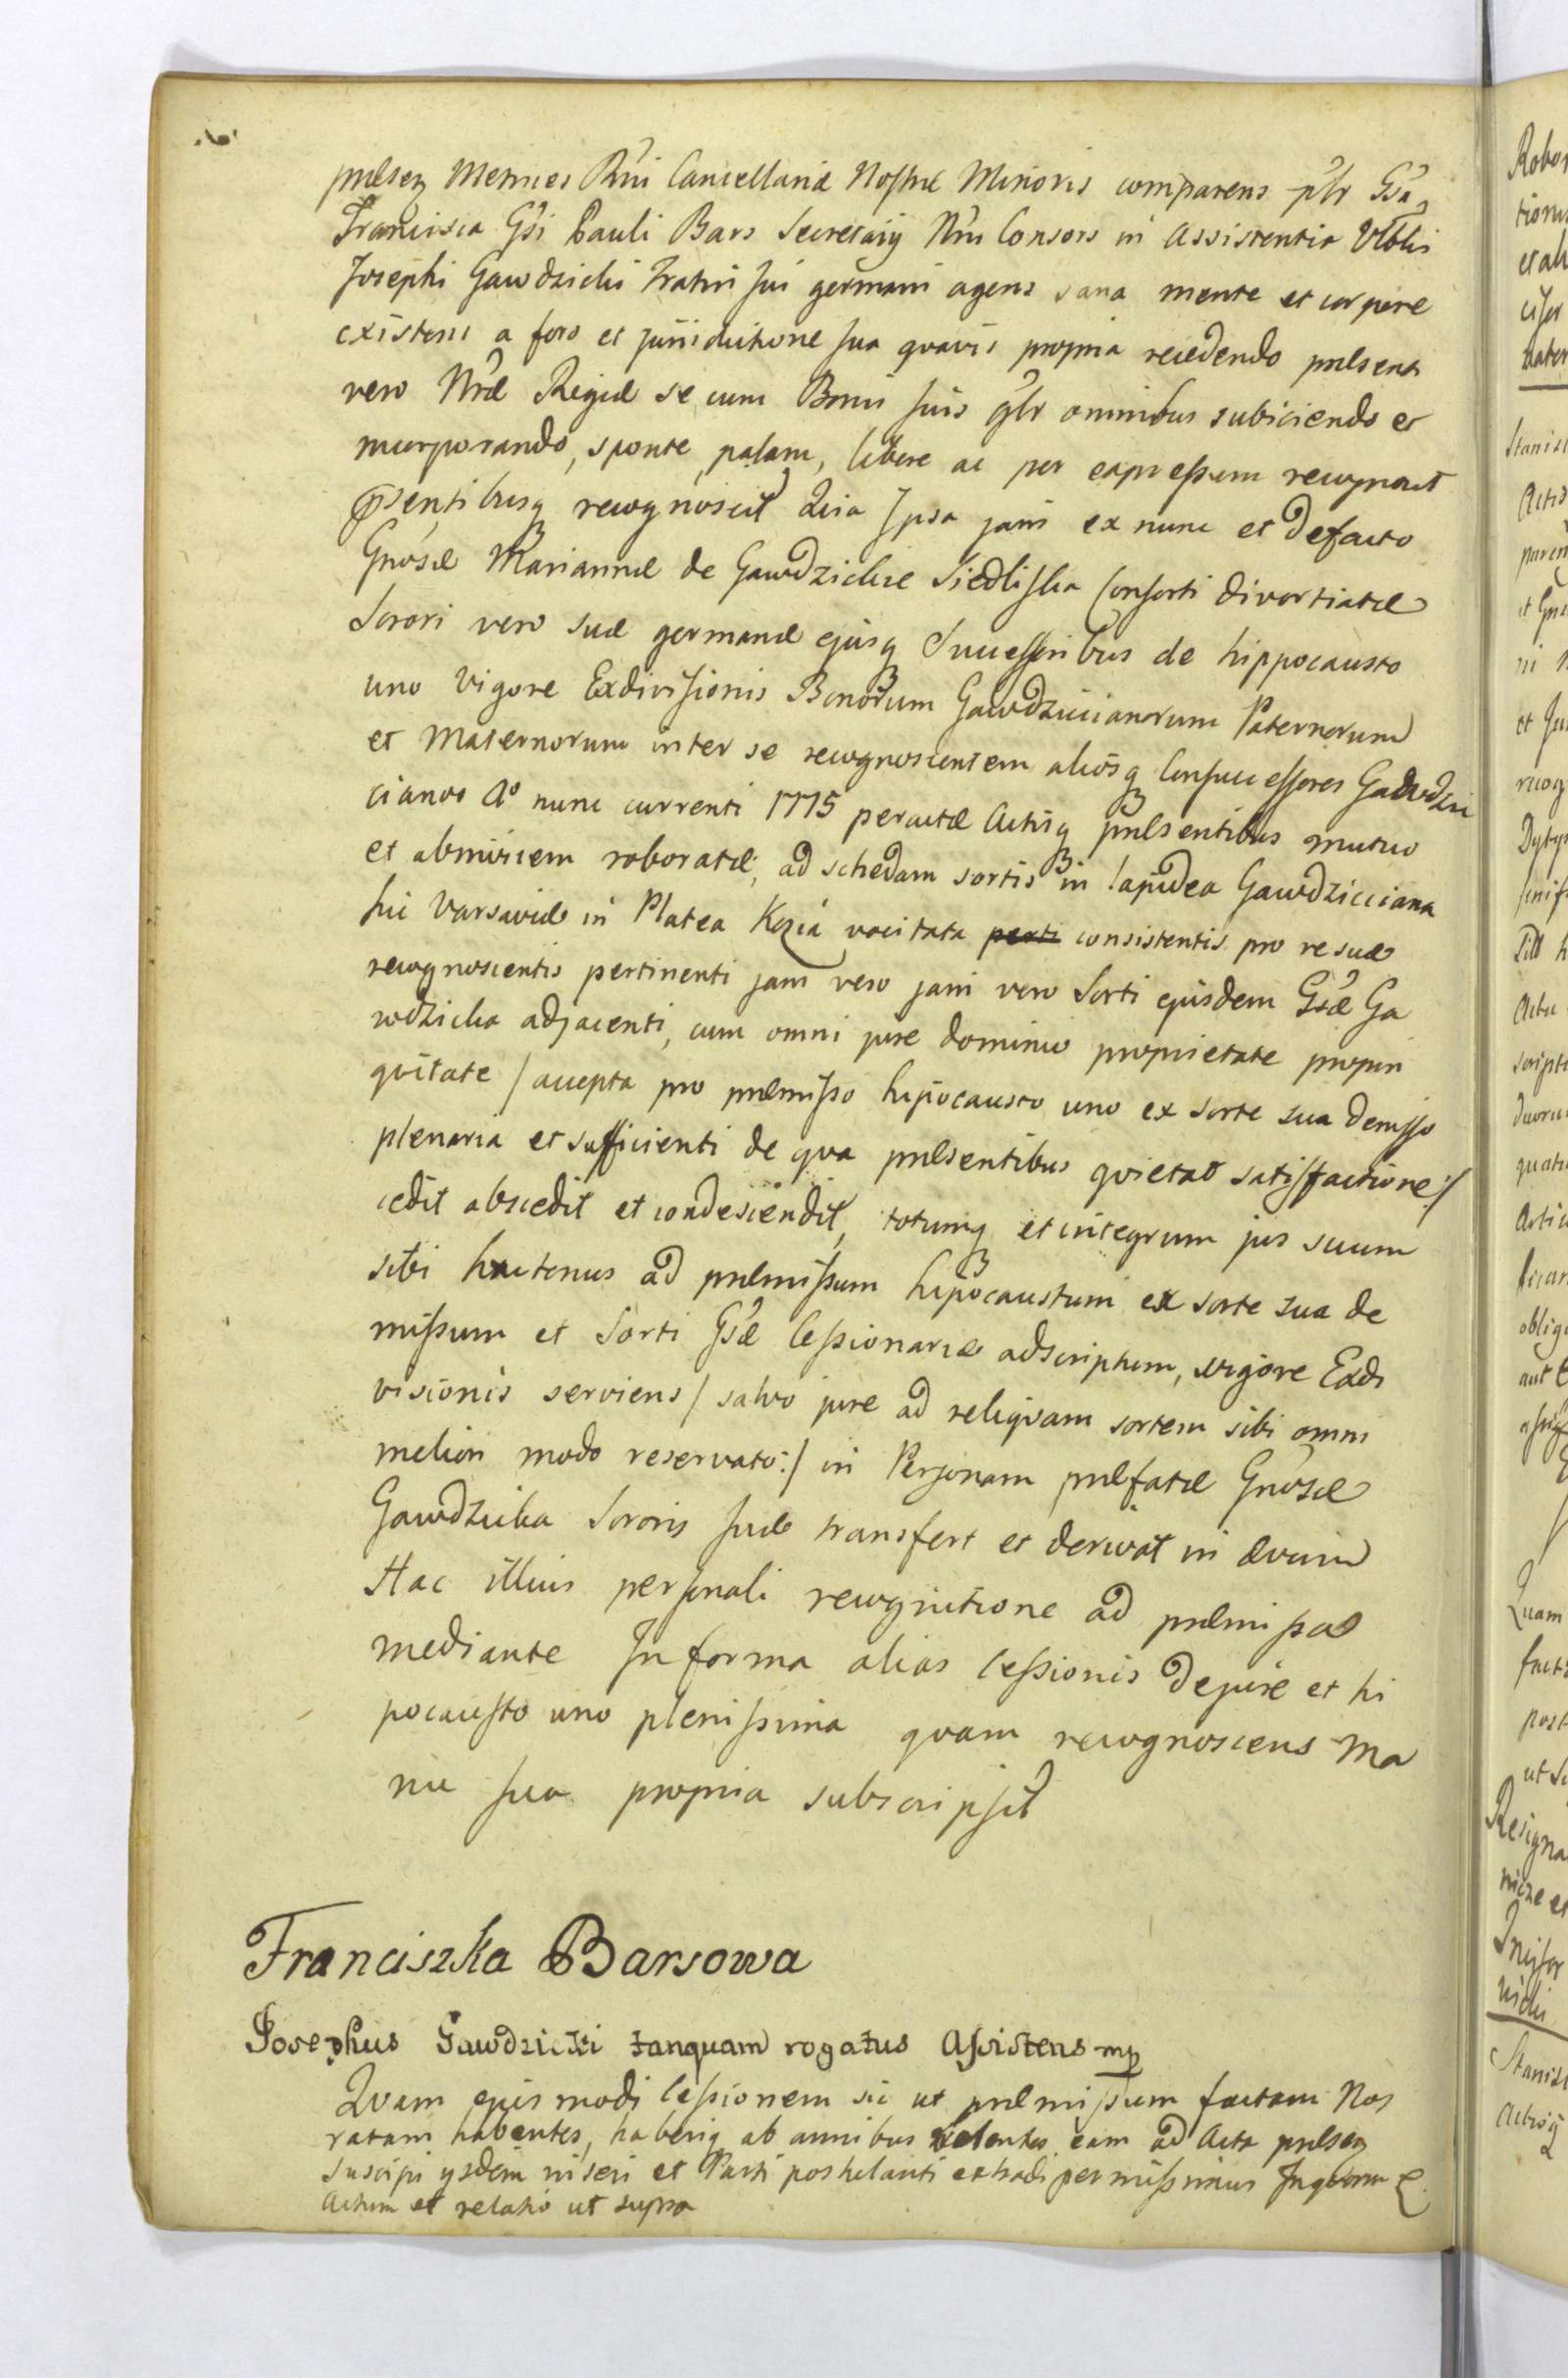 præsen Metrices Rni Cancellariæ Nostræ Minoris comparens plr Gsa
Francisca Gsi Pauli Bars Secretarij Nri Consors in Assistentia Vrblis
Josephi Gawdzicki Fratris sui germani agens sana mente et corpore
existens a foro et jurisdictione sua qvavis propria recedendo præsenti
vero Nræ Regiæ se cum Bonis suis glr omnibus subiiciendo et
incorporando, sponte, palam, libere ac per expressum recognovit
Præsentibusq recognoscit Quia Ipsa jam ex nunc et de facto
Gnosæ Mariannæ de Gawdzickie Siedliska Consorti divortiatæ
Sorori vero suæ germanæ ejusq Successoribus de hippocausto
uno Vigore Exdivisionis Bonorum Gawdziccianorum Paternorum
et Maternorum inter se recognoscentem aliosq Consuccessores Gawdzic
cianos Ao nunc currenti 1775 peractæ Actisq præsentibus mutuo
et abinvicem roboratæ, ad schedam sortis in lapidea Gawdzicciana
hic Varsaviæ in Platea Kozia vocitata consistentis pro re suæ
recognoscentis pertinenti jam vero jam vero Sorti ejusdem Gsæ Ga
wdzicka adjacenti, cum omni jure dominio proprietate propin
qvitate / accepta pro præmisso hipocausto uno ex sorte sua demisso
plenaria et sufficienti de qva præsentibus qvietat satisfactione:/
cedit abscedit et condescendit, totumq et integrum jus suum
sibi hactenus ad præmissum hipocaustum ex sorte sua de
missum et Sorti Gsæ Cessionariæ adscriptum, vigore Exdi
visionis serviens / salvo jure ad reliqvam sortem sibi omni
meliori modo reservato:/ in Personam præfatæ Gnosæ
Gawdzicka Sororis suæ transfert et derivat in ævum
Hac illius personali recognitione ad præmissa
mediante In forma alias Cessionis de jure et hi
pocausto uno plenissima qvam recognoscens Ma
nu sua propria subscripsit
Franciszka Barsowa
Josephus Gawdzicki tanquam rogatus Assistens mp
Qvam ejusmodi Cessionem sic ut præmissum factam Nos
ratam habentes, haberiq ab omnibus volentes eam ad Acta præsen
suscipi ijsdem inseri et Parti postulanti extradi permissimus In qvorum
Actum et relatio ut supra